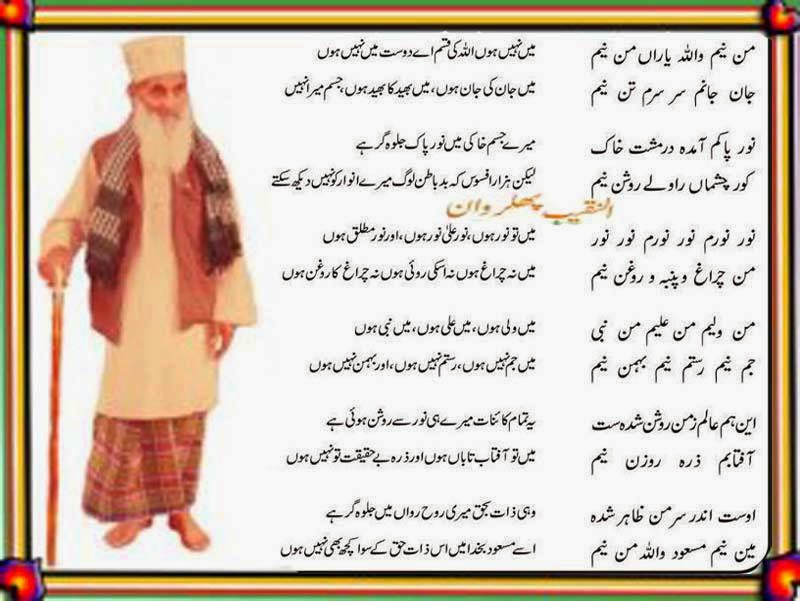 من نیم واللہ یاراں من نیم میں نہیں ہوں اللہ کی قسم اے دوست میں نہیں ہوں
جان جانم سر سرم تن نیم میں جان کی جان ہوں، میں بھید کا بھید ہوں، جسم میرا نہیں
نور پاکم آمدہ در مشت خاک میرے جسم خاکی میں نور پاک جلوہ گر ہے
کور چشماں راولے روشن نیم لیکن ہزار افسوس کہ بد باطن لوگ میرے انوار کو نہیں دیکھ سکتے
النقیب پھلروان
نور نورم نور نورم نور نور میں تو نور ہوں، نور علیٰ نور ہوں، اور نور مطلق ہوں
من چراغ و پنبہ و روغن نیم میں نہ چراغ ہوں نہ اسکی روئی ہوں نہ چراغ کا روغن ہوں
من ولیم من علیم من نبی میں ولی ہوں، میں علی ہوں، میں نبی ہوں
جم نیم رستم نیم بہمن نیم میں جم نہیں ہوں، رستم نہیں ہوں، اور بہمن نہیں ہوں
این ہم عالم زمن روشن شدہ ست یہ تمام کائنات میرے ہی نور سے روشن ہوئی ہے
آفتابم ذرہ روزن نیم میں تو آفتاب تاباں ہوں اور ذرہ بے حقیقت تو نہیں ہوں
اوست اندر سر من ظاہر شدہ وہی ذات بحق میری روح رواں میں جلوہ گر ہے
مین نیم مسعود واللہ من نیم اسے مسعود بخدا میں اس ذات حق کے سوا کچھ بھی نہیں ہوں